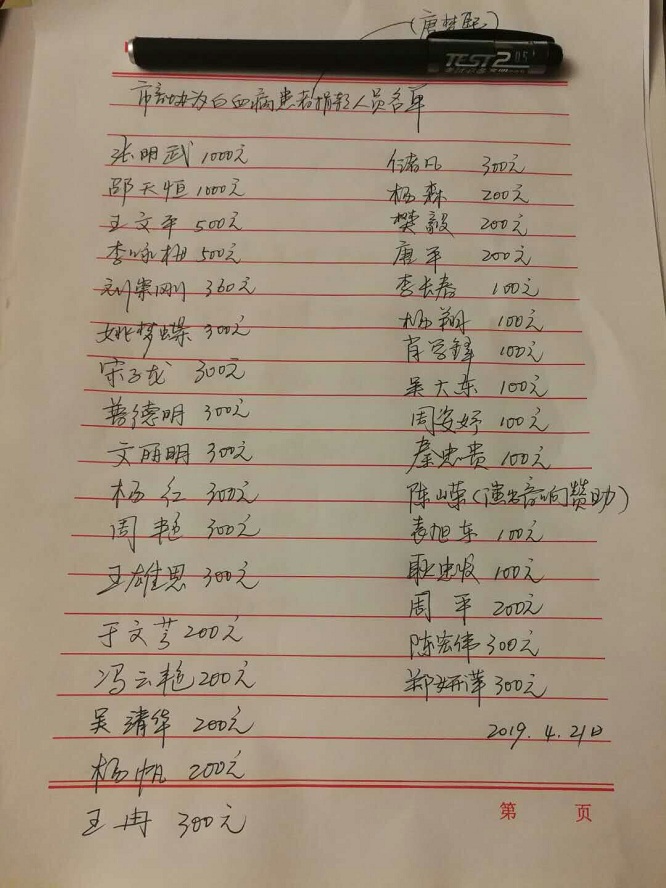 (唐梦熙)
TEST2 05
市音协为白血病患者捐款人员名单
张明武 1000元
邵天恒 1000元
王文平 500元
李咏梅 500元
刘崇刚 360元
姚梦蝶 300元
宋子龙 300元
善德明 300元
文丽明 300元
杨红 300元
周艳 300元
王雄恩 300元
于文芳 200元
冯云艳 200元
吴靖华 200元
杨帆 200元
王冉 300元
储凡 300元
杨森 200元
樊毅 200元
唐平 200元
李长春 100元
杨翔 100元
肖学锋 100元
吴大东 100元
周安妤 100元
秦忠贵 100元
陈嵘(演出音响赞助)
袁旭东 100元
耿忠 100元
周平 200元
陈宏伟 300元
郑妍萍 300元
2019.4.21日
第 页